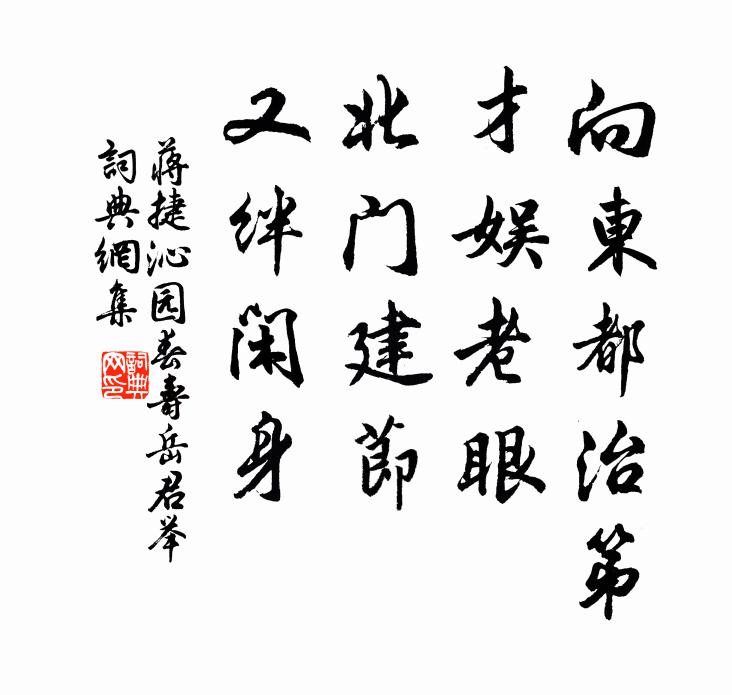 向東都治第
才娱老眼
北门建節
又绊閑身
蒋捷沁园春寿岳君举
詞典網集
詞典网印